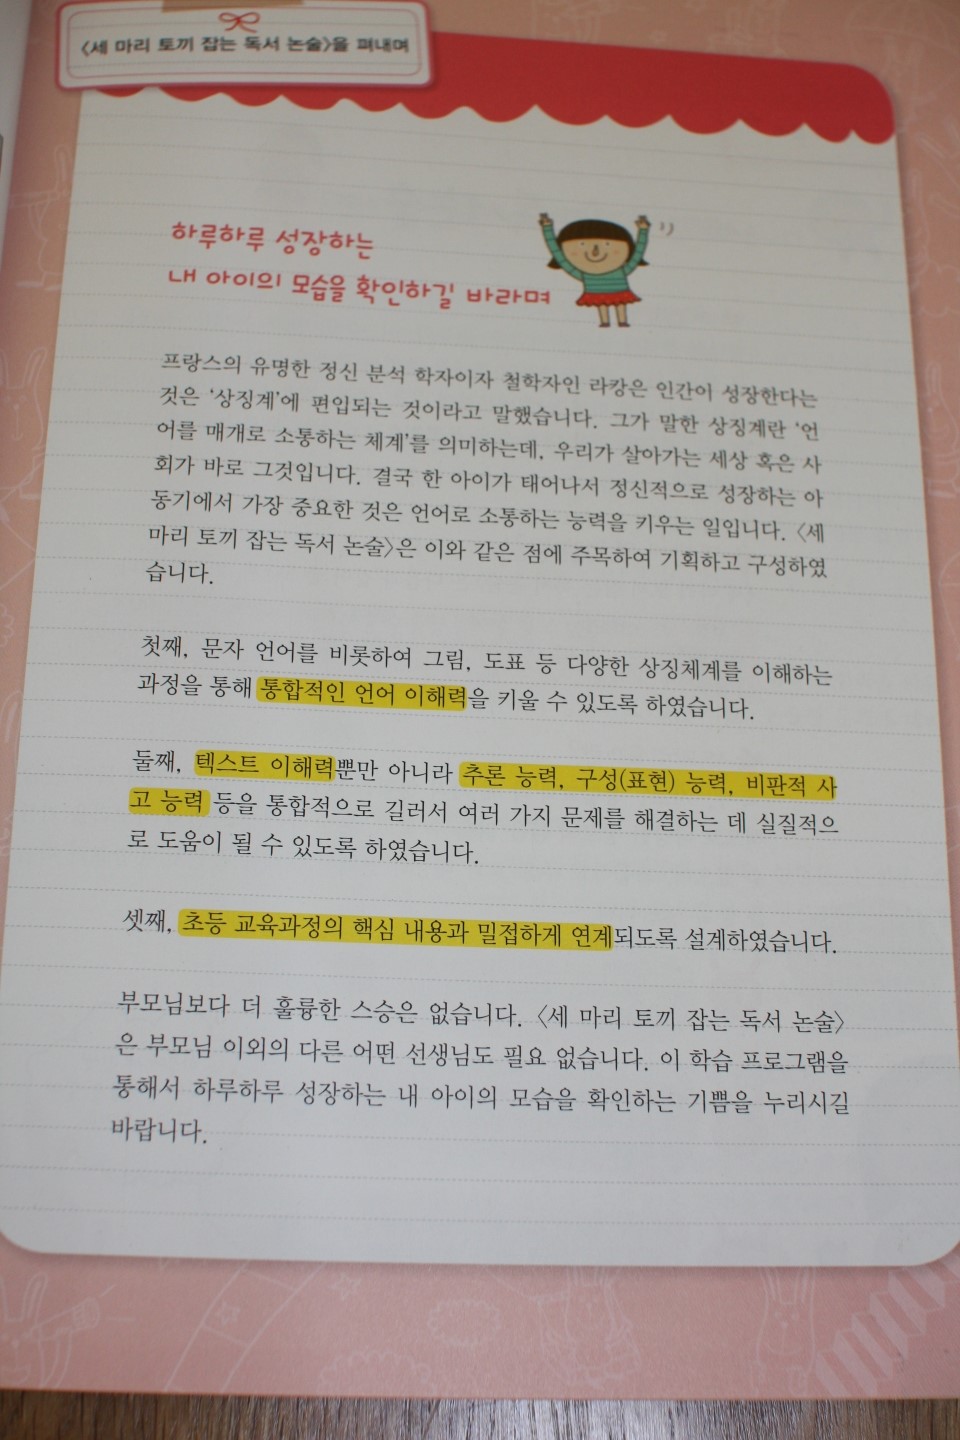 〈세 마리 토끼 잡는 독서 논술〉을 펴내며
하루하루 성장하는
내 아이의 모습을 확인하길 바라며
프랑스의 유명한 정신 분석 학자이자 철학자인 라캉은 인간이 성장한다는
것은 ‘상징계’에 편입되는 것이라고 말했습니다. 그가 말한 상징계란 ‘언
어를 매개로 소통하는 체계’를 의미하는데, 우리가 살아가는 세상 혹은 사
회가 바로 그것입니다. 결국 한 아이가 태어나서 정신적으로 성장하는 아
동기에서 가장 중요한 것은 언어로 소통하는 능력을 키우는 일입니다. 〈세
마리 토끼 잡는 독서 논술〉은 이와 같은 점에 주목하여 기획하고 구성하였
습니다.
첫째, 문자 언어를 비롯하여 그림, 도표 등 다양한 상징체계를 이해하는
과정을 통해 통합적인 언어 이해력을 키울 수 있도록 하였습니다.
둘째, 텍스트 이해력뿐만 아니라 추론 능력, 구성(표현) 능력, 비판적 사
고 능력 등을 통합적으로 길러서 여러 가지 문제를 해결하는 데 실질적으
로 도움이 될 수 있도록 하였습니다.
셋째, 초등 교육과정의 핵심 내용과 밀접하게 연계되도록 설계하였습니다.
부모님보다 더 훌륭한 스승은 없습니다. 〈세 마리 토끼 잡는 독서 논술〉
은 부모님 이외의 다른 어떤 선생님도 필요 없습니다. 이 학습 프로그램을
통해서 하루하루 성장하는 내 아이의 모습을 확인하는 기쁨을 누리시길
바랍니다.